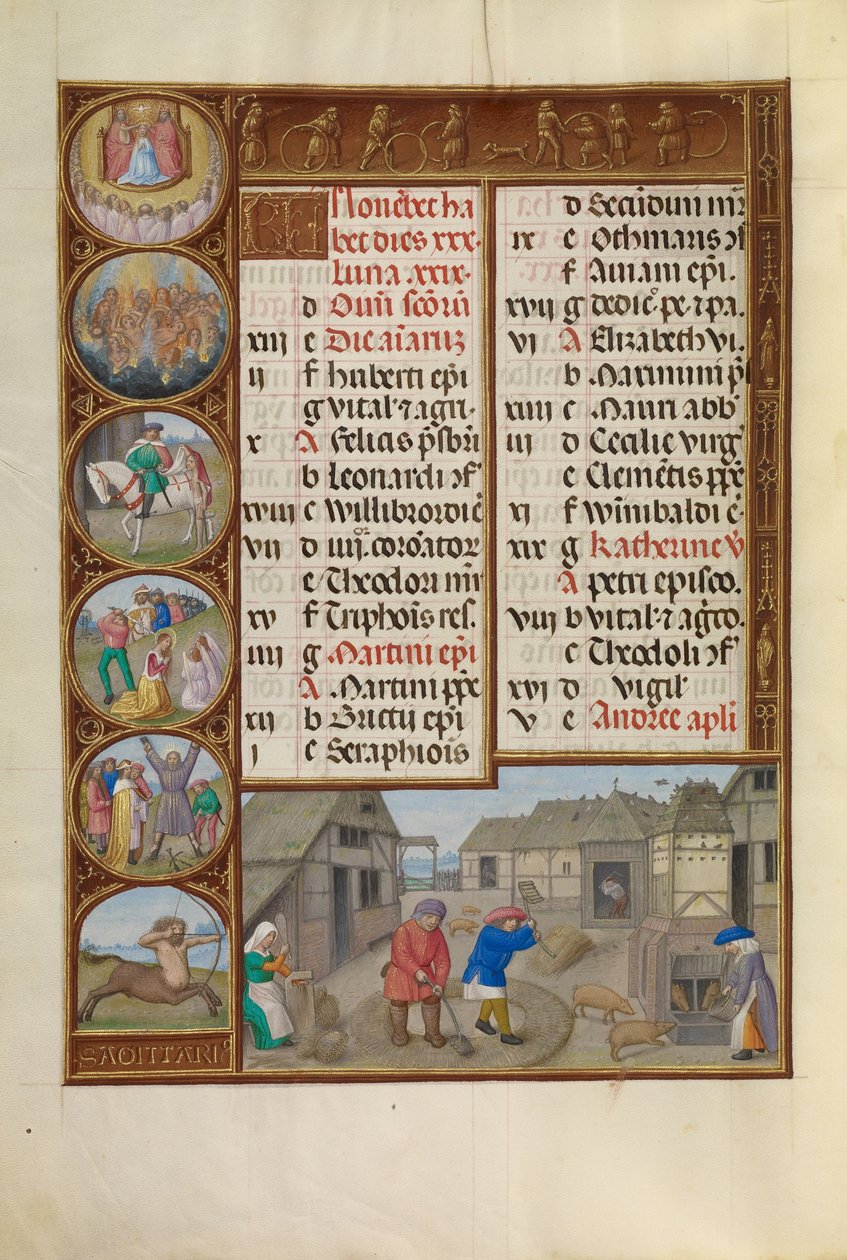 KL Novēbet ha
bet dies xxx.
Luna .xxix.
d Oīm̄ scōrum
xiii e Die aīaruz
ii f huberti epī
g vital' ⁊ agri.
x A felicis p̄sbrī
b Leonardi ↄf
xviii c willibrordi ē
vii d iiijor corōator
e Theodori mr̄
xv f Triphōis res.
iiii g Martini epī
A Martini pp̄e
xii b Brictii epī
i c Seraphiōis
d Secūdini mr̄
ix e Othmaris ↄf
f Aniani epī.
xvii g dedic̄ pe. ⁊ pa.
vi A Elizabeth vi.
b Maximini p̄
xiiii c Mauri abb
iii d Cecilie virg
e Clemētis pp̄e
xi f winibaldi ē
xix g Katherine v̄
A petri episco.
viii b vital' ⁊ agīco.
c Theodoli ↄf
xvi d vigil'
v e Andree apli
SAGITTARI9